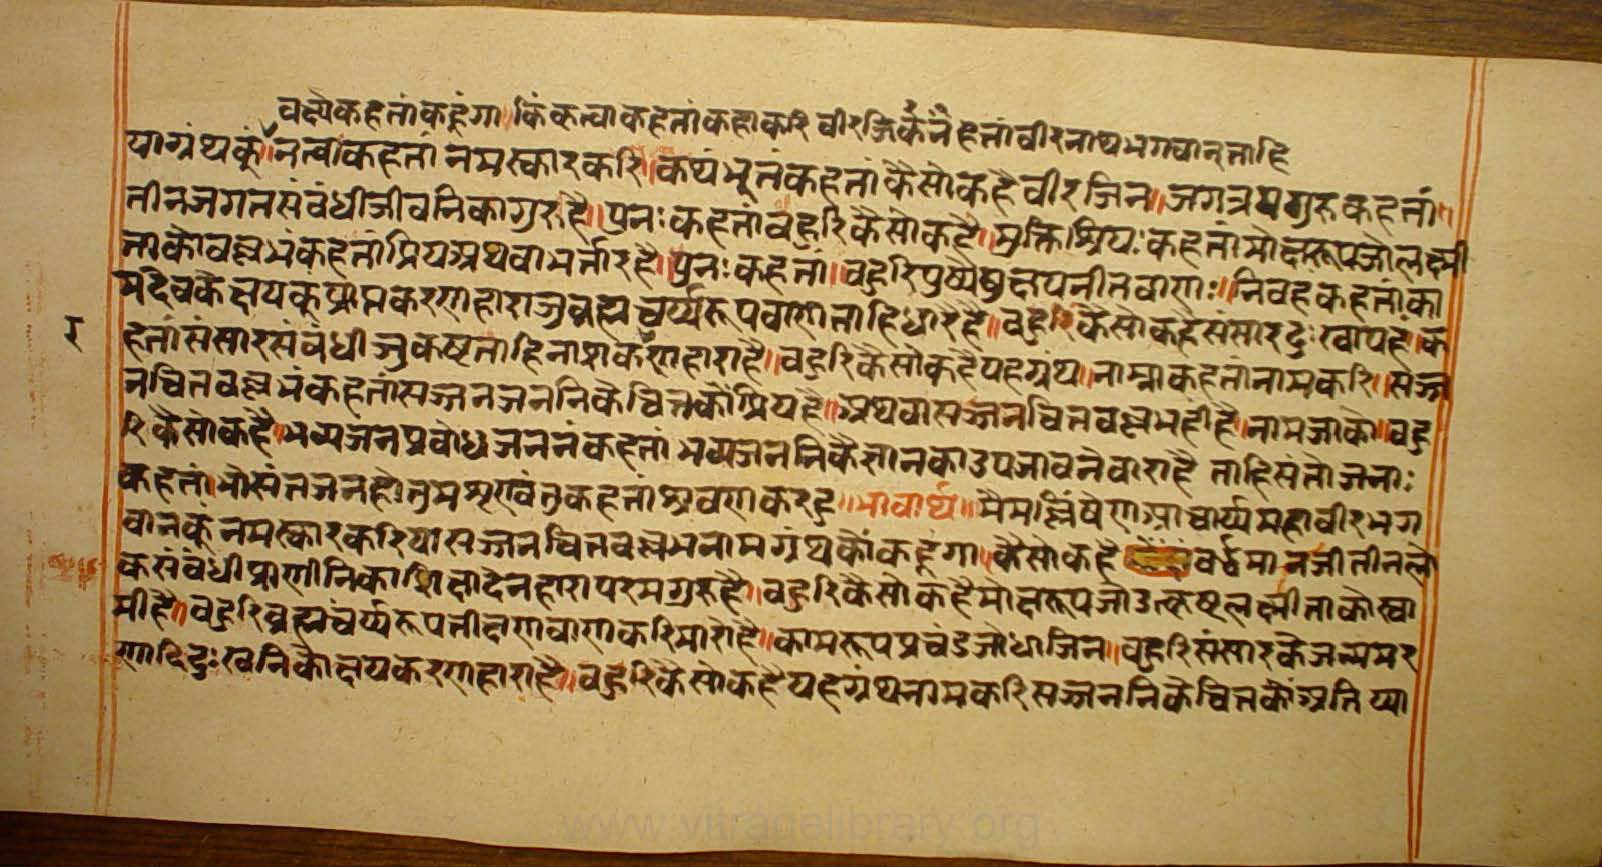 वक्ष्येकहतांकहूंगा॥किंकृत्वाकहतांकहाकरिवीरजिनंकहतांवीरनाथभगवान्ताहि
याग्रंथकूं॥नत्वाकहतांनमस्कारकरि॥कथंभूतंकहतांकैसोकहैवीरजिन॥जगत्रयगुरुकहतां॥
तीनजगतसंबंधीजीवनिकागुरुहै॥पुनःकहतांबहुरिकैसोकहै॥मुक्तिश्रियःकहतांमोक्षरूपजोलक्ष्मी
ताकोवल्लभंकहतांप्रियअथवाभर्तारहै॥पुनःकहतां॥बहुरिपुष्पेषुक्षयनीतवाणः॥निवहकहतांका
मदेवकेक्षयकूप्राप्तकरणहाराजुब्रह्मचर्य्यरूपवाणताहिधारहै॥बहुरिकैसोकहैसंसारदुःखापहं॥क
हतांसंसारसंबंधीजुकष्टताहिनाशकरणहाराहै॥बहुरिकैसोकहैयहग्रंथ॥नाम्नाकहतांनामकरि॥सज्ज
नचितवल्लभंकहतांसज्जनजननिकेचितकोंप्रियहै॥अथवासज्जनचितवल्लभहीहै॥नामजाको॥बहु
रिकैसोकहै॥भव्यजनप्रबोधजननंकहतांभव्यजननिकैज्ञानकाउपजावनेवाराहै ताहिसंतोजनाः
कहतां॥भोसंतजनहो॥तुमशृण्वंतुकहतांश्रवणकरहु॥भावार्थ॥मैमल्लिषेणआचार्य्यमहावीरभग
वानकूंनमस्कारकरियासज्जनचितवल्लभनामग्रंथकौंकहूंगा॥कैसोकहैवर्धमानजीतीनलो
कसंबंधीप्राणीनिकाशिक्षादेनहारापरमगुरुहै॥बहुरिकैसोकहैमोक्षरूपजोउत्कृष्टलक्ष्मीताकोस्वा
मीहै॥बहुरिब्रह्मचर्य्यरूपतीक्ष्णवाणकरिमारोहै॥कामरूपप्रचंडजोधाजिन॥बहुरिसंसारकेजन्ममर
णादिदुःखनिकोक्षयकरणहाराहै॥बहुरिकैसोकहैयहग्रंथनामकरिसज्जननिकेचितकौंअतिप्या
www.vitragelibrary.org